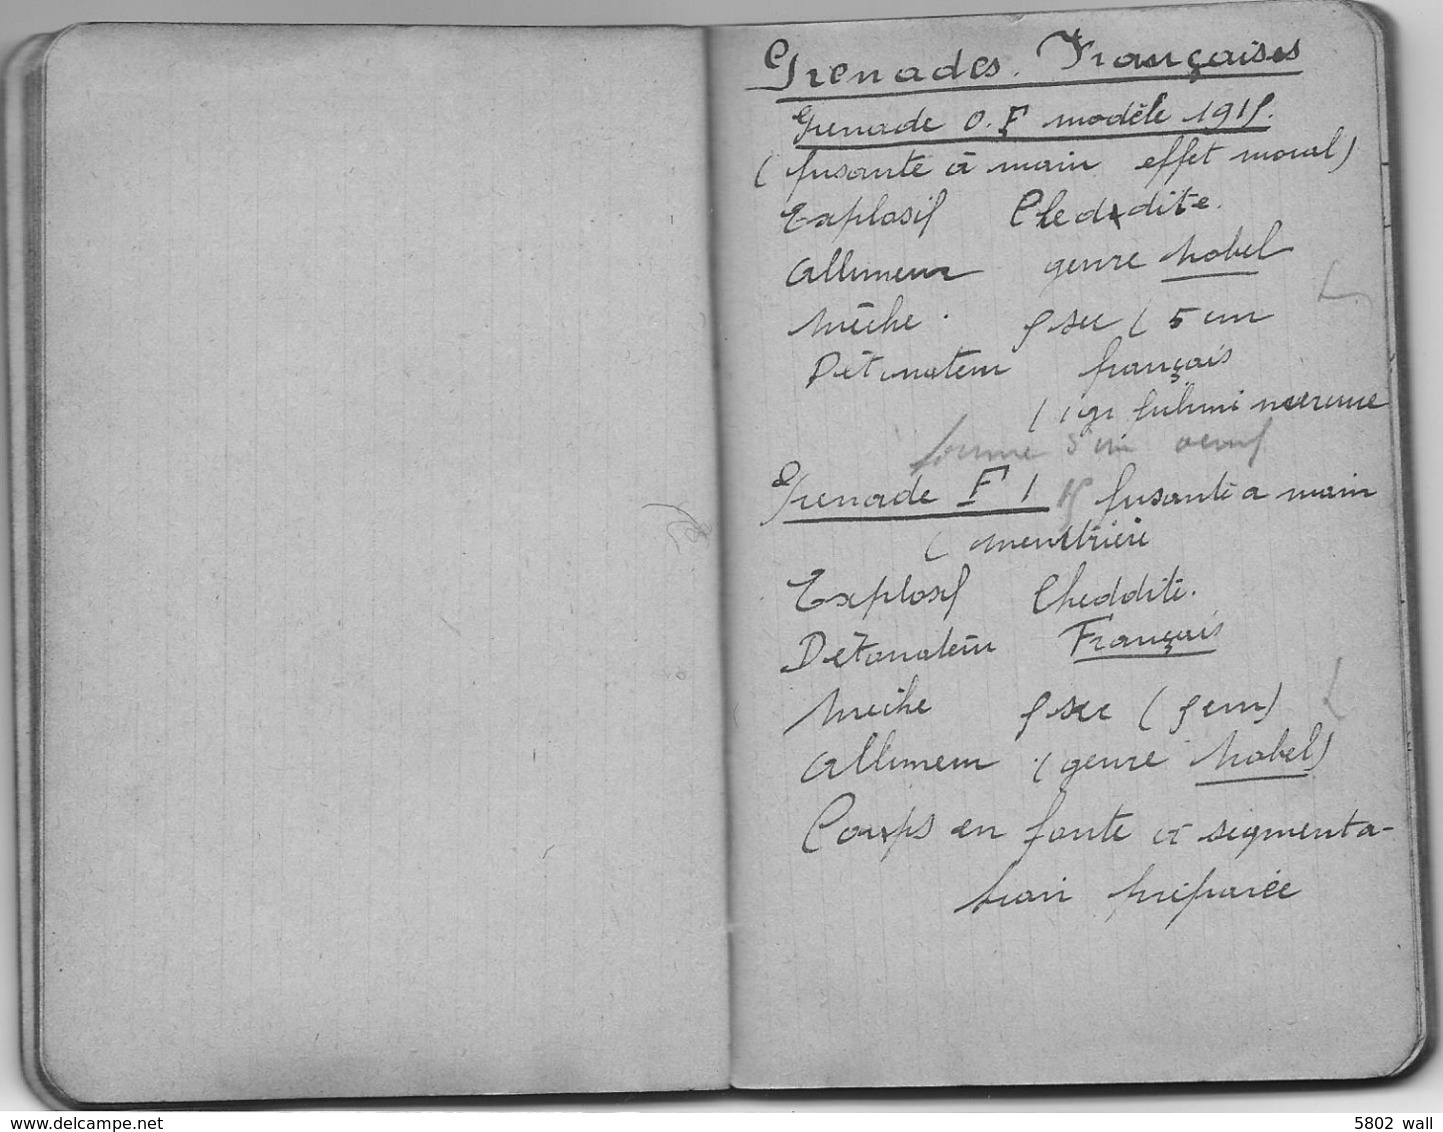 Grenades. Françaises
Grenade O.F modèle 1915.
( fusante à main effet moral)
Explosif Cheddite.
Allumeur genre Nobel
Mèche. 5 sec ( 5 cm
Détonateur français
( 1 gr fulmi mercure
forme d'un oeuf
Grenade F 1 15 fusante a main
( meurtrière
Explosif Cheddite.
Détonateur Français
Meche 5 sec ( 5 cm)
Allumeur (genre Nobel)
Corps en fonte à segmenta-
tion préparée
www.delcampe.net
5802 wall